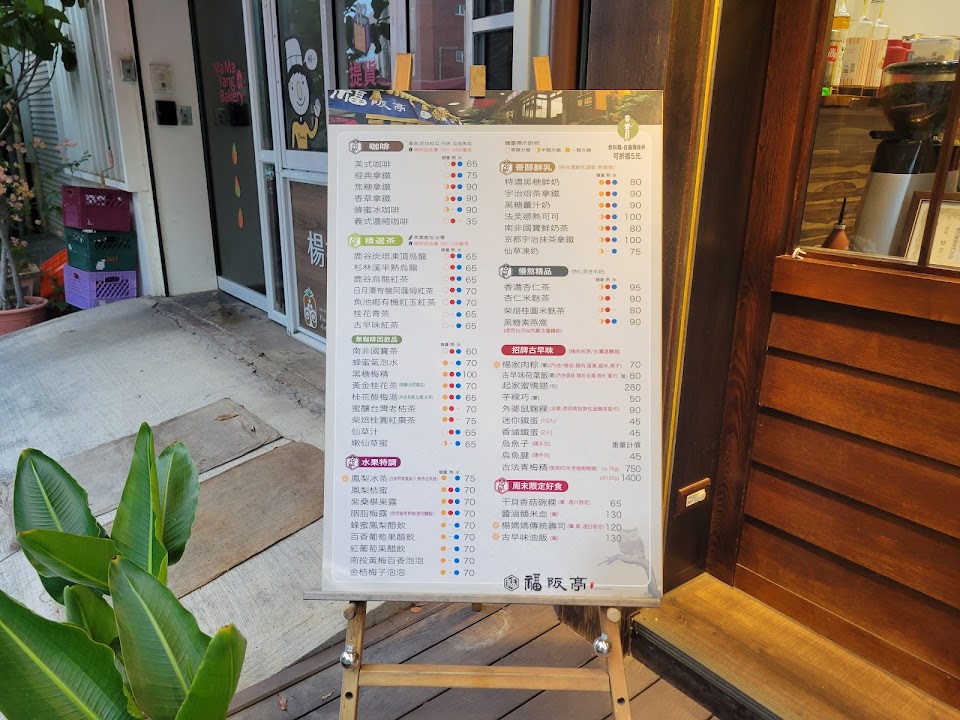 MaMa
Yang
Bakery
提貨
楊
福阪亭
咖啡
糖量 熱 冰
美式咖啡 65
經典拿鐵 75
焦糖拿鐵 90
香草拿鐵 90
蜂蜜冰咖啡 90
義式濃縮咖啡 35
精選茶
糖量 熱 冰
鹿谷炭焙凍頂烏龍 65
杉林溪半熟烏龍 65
鹿谷烏龍紅茶 65
日月潭有機阿薩姆紅茶 70
魚池鄉有機紅玉紅茶 70
桂花青茶 65
古早味紅茶 65
無咖啡因飲品
糖量 熱 冰
南非國寶茶 60
蜂蜜氣泡水 70
黑糖梅精 100
黃金桂花茶 70
桂花酸梅湯 70
蜜釀台灣老桔茶 70
柴焙桂圓紅棗茶 75
仙草汁 65
嫩仙草蜜 65
水果特調
糖量 熱 冰
鳳梨冰茶 75
鳳梨桔蜜 70
紫桑椹果露 70
胭脂梅露 70
蜂蜜鳳梨醋飲 70
百香葡萄果醋飲 70
紅葡萄果醋飲 70
南投黃梅百香泡泡 70
金桔梅子泡泡 70
糖量標示說明
飲料類-自備環保杯
可折抵5元.
香醇鮮乳
糖量 熱 冰
特濃黑糖鮮奶 80
宇治焙茶拿鐵 90
黑糖薑汁奶 90
法芙娜熱可可 100
南非國寶鮮奶茶 80
京都宇治抹茶拿鐵 100
仙草凍奶 75
慢熬精品
糖量 熱 冰
香濃杏仁茶 95
杏仁米麩茶 90
柴焙桂圓米麩茶 80
黑糖素燕窩 90
招牌古早味
楊家肉粽 70
古早味荷葉飯 80
起家蜜鴨翅 260
芋粿巧 50
外婆鼠麴粿 90
迷你鐵蛋 (10入) 45
香滷鐵蛋 (2入) 45
烏魚子 重量計價
烏魚腱 45
古法青梅精 750
1400
周末限定好食
干貝香菇碗粿 65
醬滷鵝米血 130
楊媽媽傳統壽司 120
古早味油飯 130
福阪亭